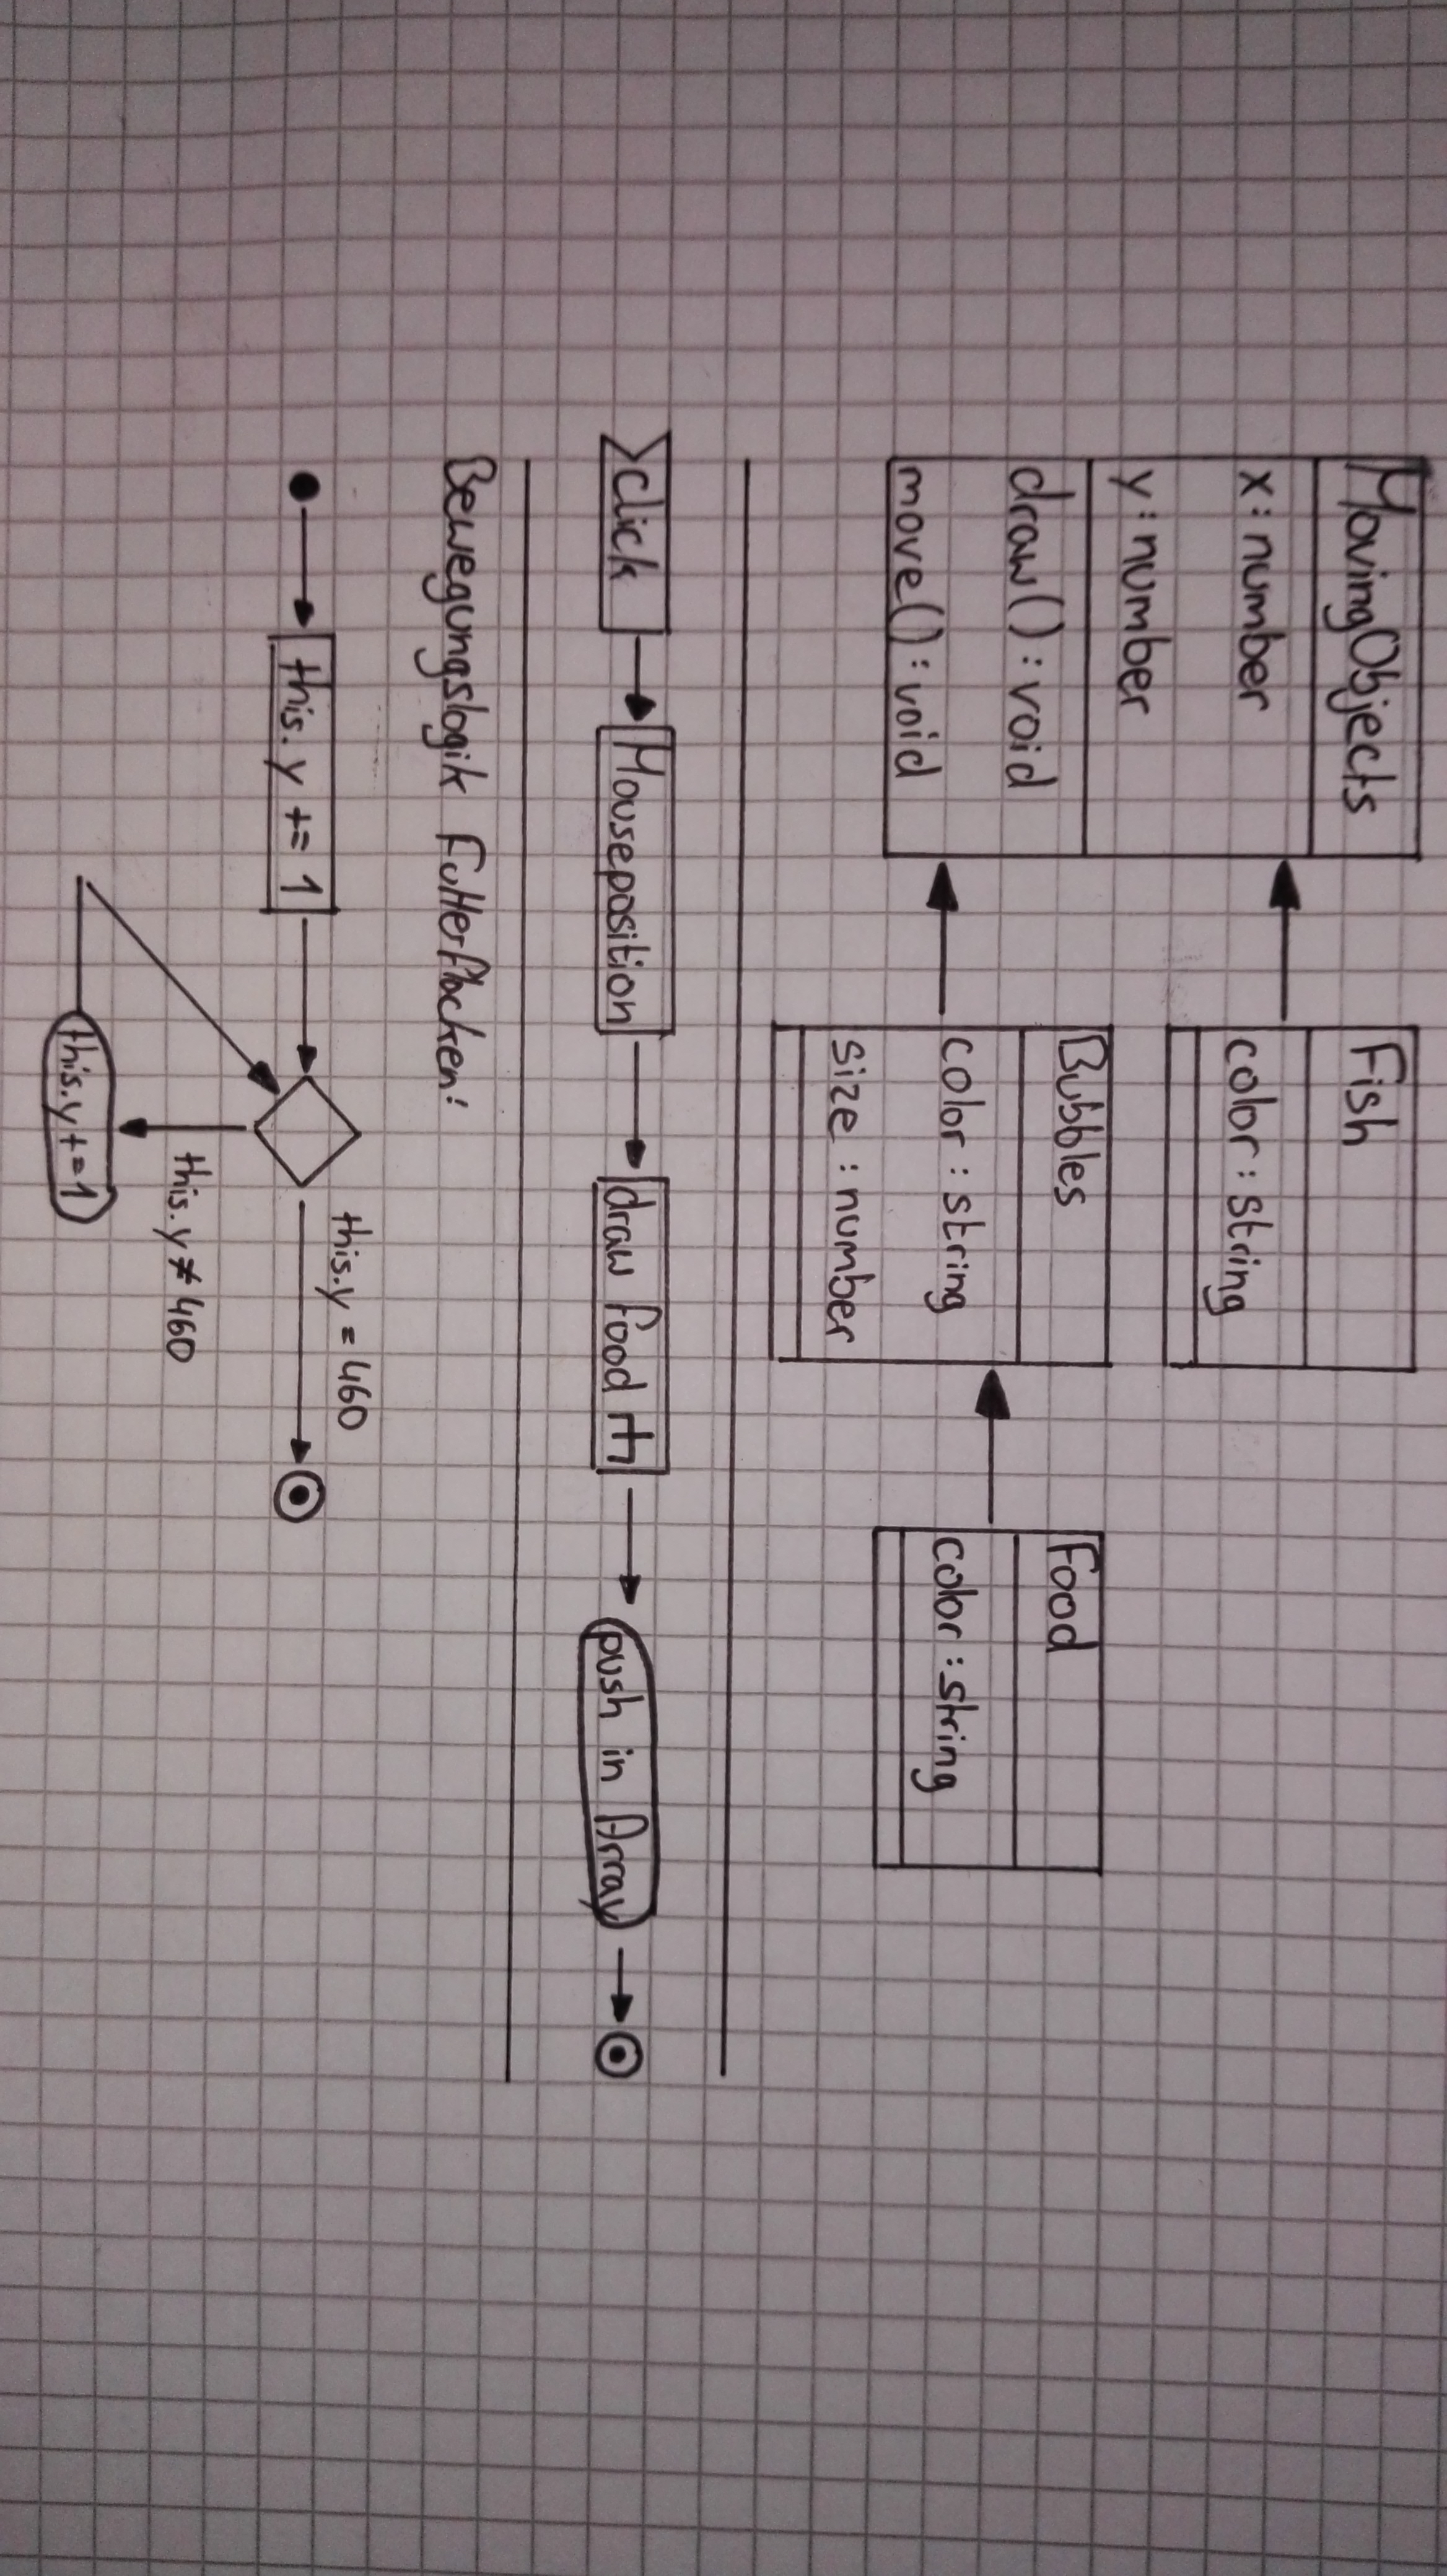 MovingObjects
x: number
y: number
draw(): void
move(): void
Fish
color: string
Bubbles
color: string
size: number
Food
color: string
Click
Mouseposition
draw Food
push in Array
Bewegungslogik Futterflocken:
this.y += 1
this.y = 460
this.y ≠ 460
this.y += 1